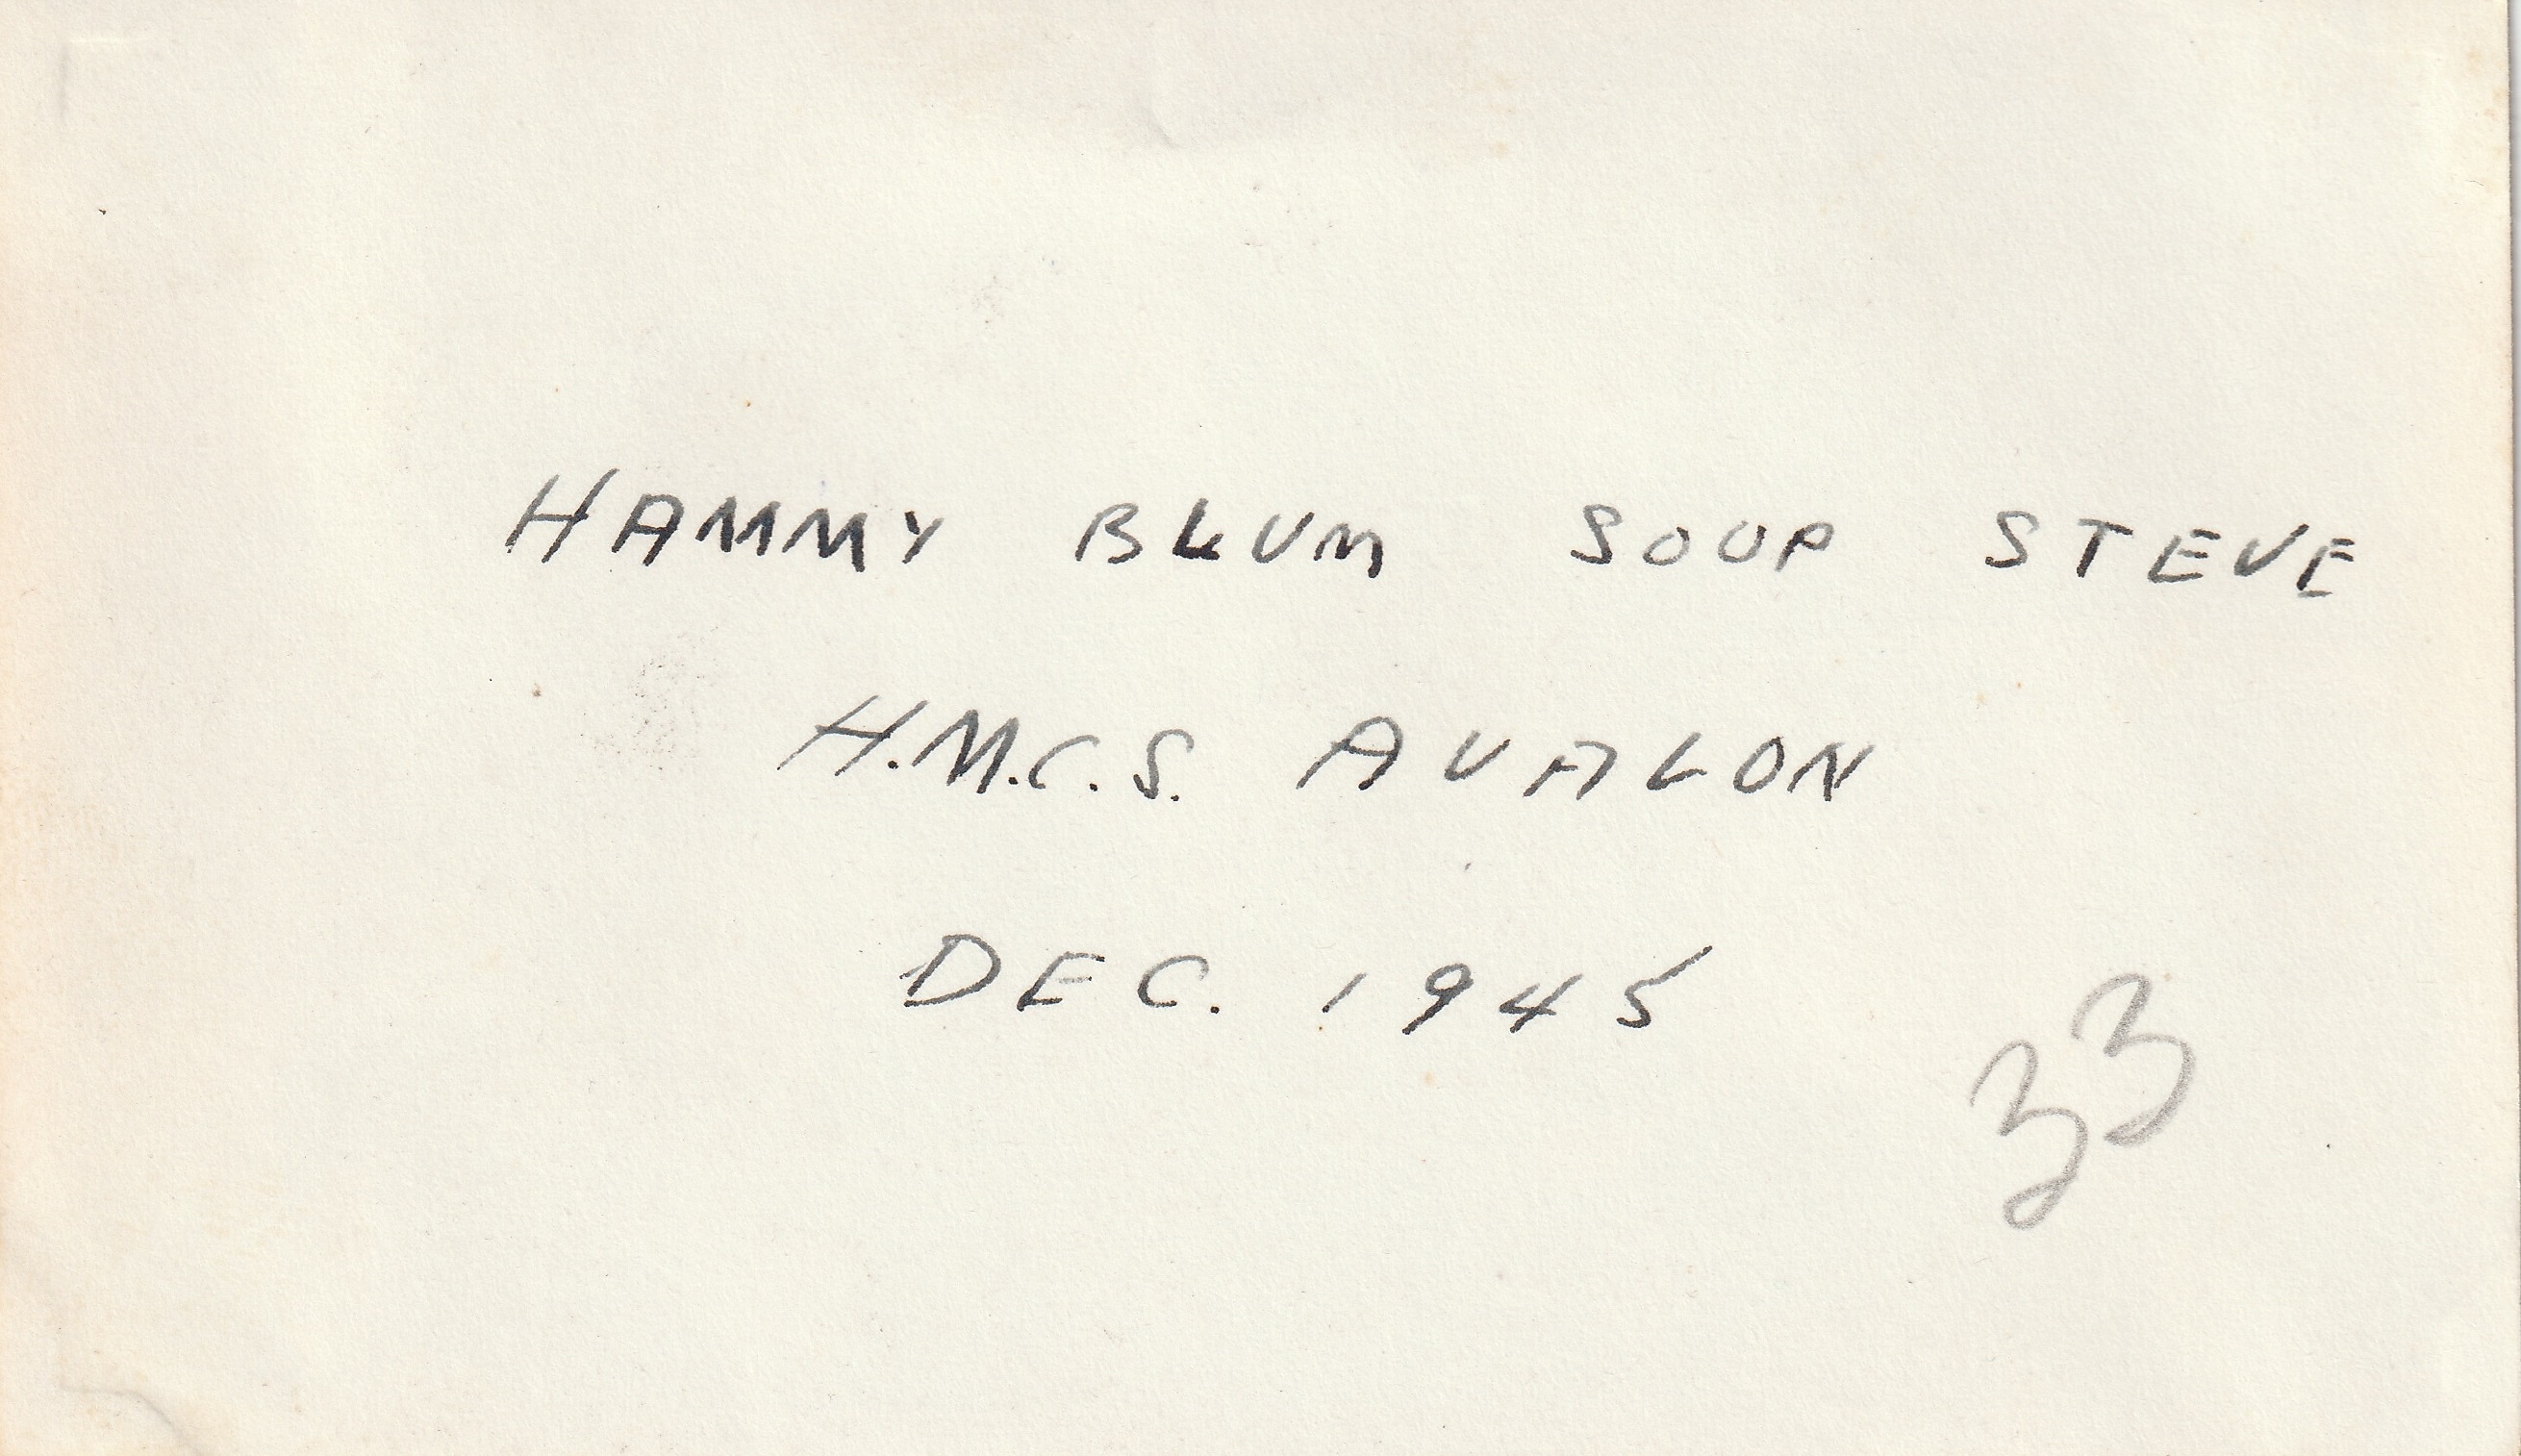 HAMMY BLUM SOUP STEVE
H.M.C.S. AVALON
DEC. 1945
33